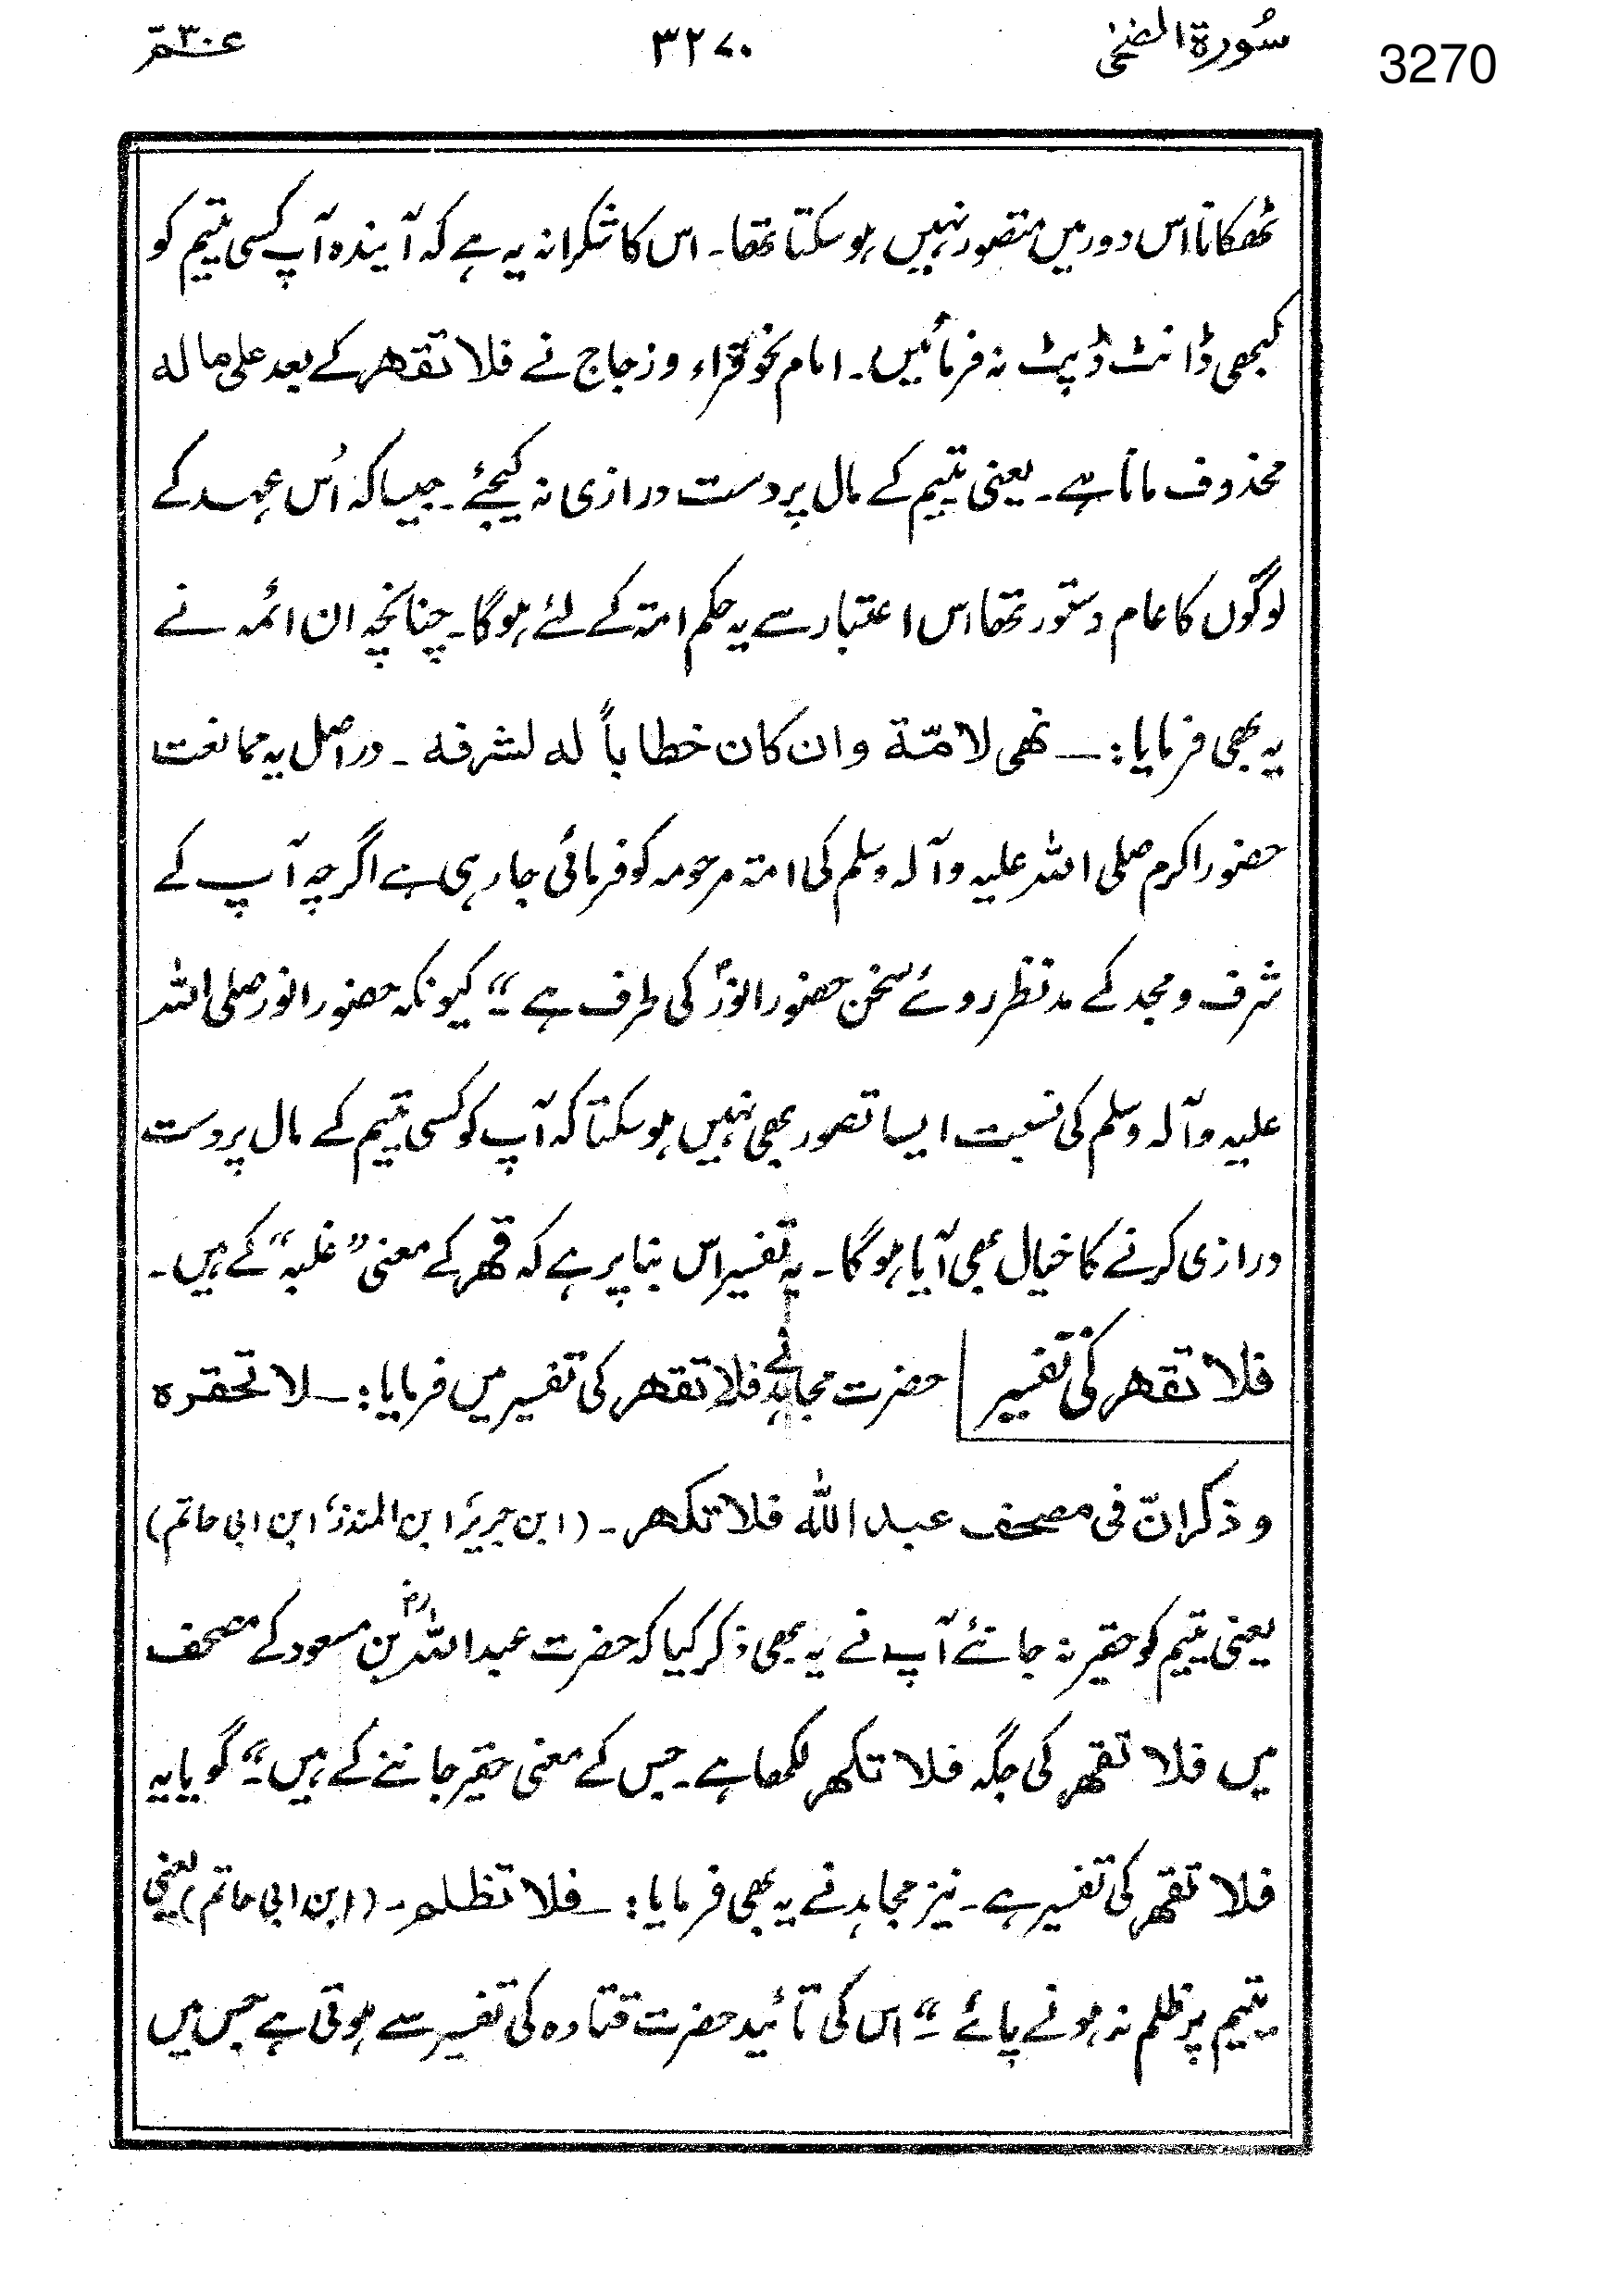 سُورۃ الضحٰی ۳۲۷۰ عمّ ۳۰ 3270
ٹھکانا اس دور میں متصور نہیں ہو سکتا تھا۔ اس کا شکرانہ یہ ہے کہ آیندہ آپ کسی یتیم کو
کبھی ڈانٹ ڈپٹ نہ فرمائیں۔ امام نحو فرّاء و زجاج نے فلا تقھر کے بعد علی ما لہ
محذوف مانا ہے۔ یعنی یتیم کے مال پر دست درازی نہ کیجئے۔ جیسا کہ اُس عہد کے
لوگوں کا عام دستور تھا اس اعتبار سے یہ حکم امتہ کے لئے ہوگا۔ چنانچہ ان ائمہ نے
یہ بھی فرمایا :۔ نھی لامّۃ وان کان خطاباً لہ لشرفہ ۔ دراصل یہ ممانعت
حضور اکرم صلی اللہ علیہ وآلہ وسلم کی امتہ مرحومہ کو فرمائی جا رہی ہے اگرچہ آپ کے
شرف و مجد کے مدنظر روئے سخن حضور انورؐ کی طرف ہے ۔“ کیونکہ حضور انور صلی اللہ
علیہ وآلہ وسلم کی نسبت ایسا تصور بھی نہیں ہو سکتا کہ آپ کو کسی یتیم کے مال پر دست
درازی کرنے کا خیال بھی آیا ہوگا۔ یہ تفسیر اس بنا پر ہے کہ قھر کے معنی ”غلبہ“ کے ہیں۔
فلا تقھر کی تفسیر | حضرت مجاہد نے فلا تقھر کی تفسیر میں فرمایا :۔ لا تحقرہ
و ذکر انّ فی مصحف عبد اللہ فلا تکھر ۔ (ابن جریر، ابن المنذر، ابن ابی حاتم)
یعنی یتیم کو حقیر نہ جانئے آپ نے یہ بھی ذکر کیا کہ حضرت عبداللہؓ بن مسعود کے مصحف
میں فلا تقھر کی جگہ فلا تکھر لکھا ہے۔ جس کے معنی حقیر جاننے کے ہیں ۔“ گویا یہ
فلا تقھر کی تفسیر ہے۔ نیز مجاہد نے یہ بھی فرمایا :۔ فلا تظلم ۔ (ابن ابی حاتم) یعنی
یتیم پر ظلم نہ ہونے پائے ۔“ اس کی تائید حضرت قتادہ کی تفسیر سے ہوتی ہے جس میں